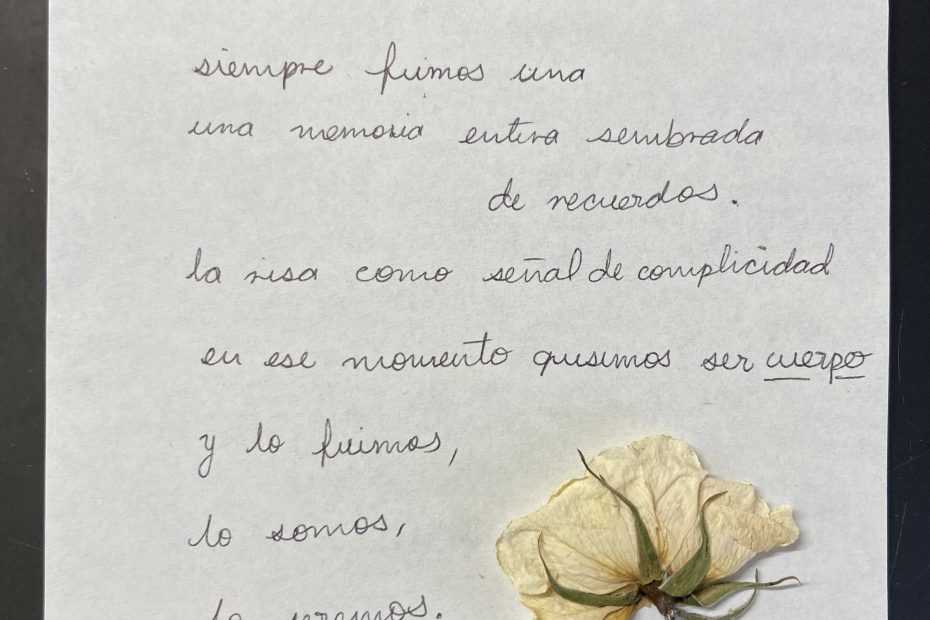 siempre fuimos una
una memoria entera sembrada
de recuerdos.
la risa como señal de complicidad
en ese momento quisimos ser cuerpo
y lo fuimos,
lo somos,